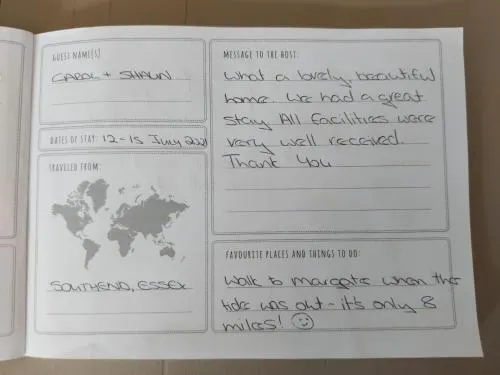 GUEST NAME(S)
CAROL + SHAUN
DATES OF STAY: 12-15 July 2021
TRAVELED FROM:
SOUTHEND, ESSEX
MESSAGE TO THE HOST:
What a lovely, beautiful
home. We had a great
stay All facilities were
very well received.
Thank You
FAVOURITE PLACES AND THINGS TO DO:
Walk to margate when the
tide was out - it's only 8
miles! ☺